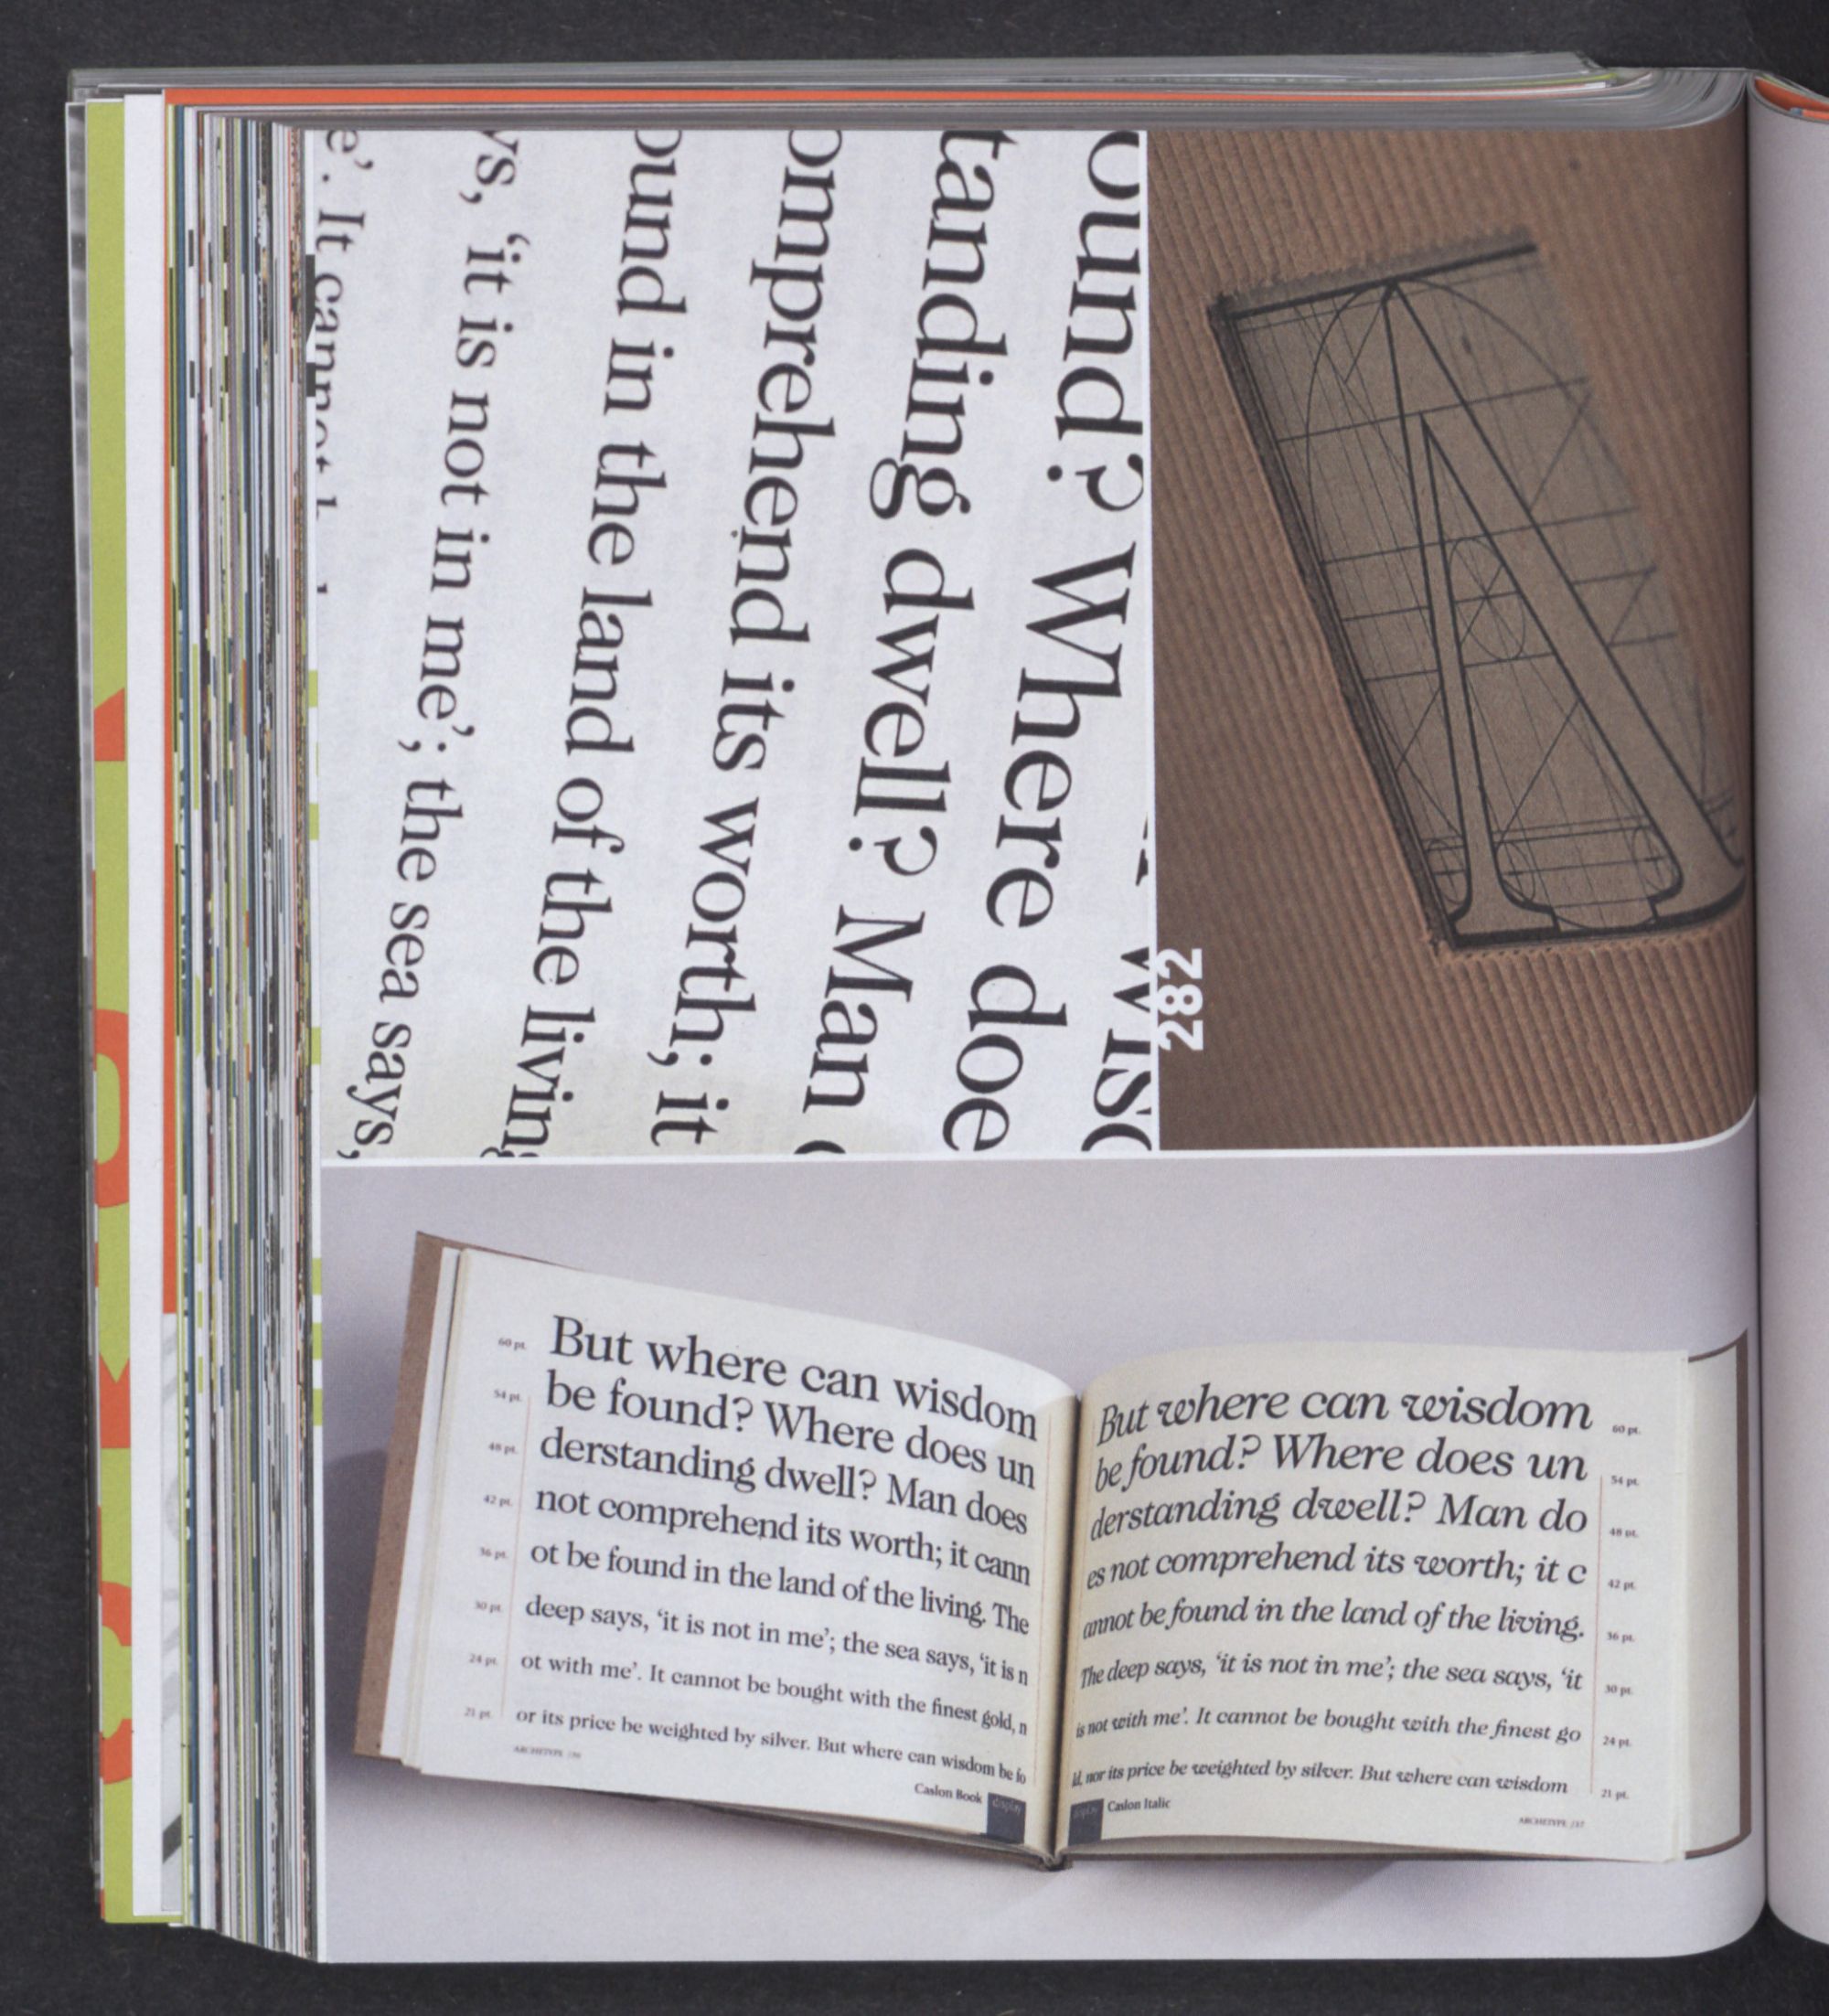 ound? Where doe
tanding dwell? Man
omprehend its worth; it
ound in the land of the living
ys, ‘it is not in me’; the sea says,
e’. It cannot
282
60 pt.
But where can wisdom
54 pt.
be found? Where does un
48 pt.
derstanding dwell? Man does
42 pt.
not comprehend its worth; it cann
36 pt.
ot be found in the land of the living. The
30 pt.
deep says, ‘it is not in me’; the sea says, ‘it is n
24 pt.
ot with me’. It cannot be bought with the finest gold, n
21 pt.
or its price be weighted by silver. But where can wisdom be fo
ARCHETYPE /36
Caslon Book
display
But where can wisdom
60 pt.
be found? Where does un
54 pt.
derstanding dwell? Man do
48 pt.
es not comprehend its worth; it c
42 pt.
annot be found in the land of the living.
36 pt.
The deep says, ‘it is not in me’; the sea says, ‘it
30 pt.
is not with me’. It cannot be bought with the finest go
24 pt.
ld, nor its price be weighted by silver. But where can wisdom
21 pt.
display
Caslon Italic
ARCHETYPE /37